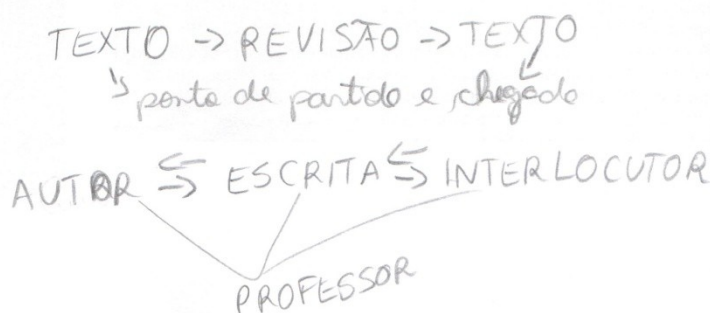 TEXTO → REVISÃO → TEXTO
ponto de partida e chegada
AUTOR ⇆ ESCRITA ⇆ INTERLOCUTOR
PROFESSOR